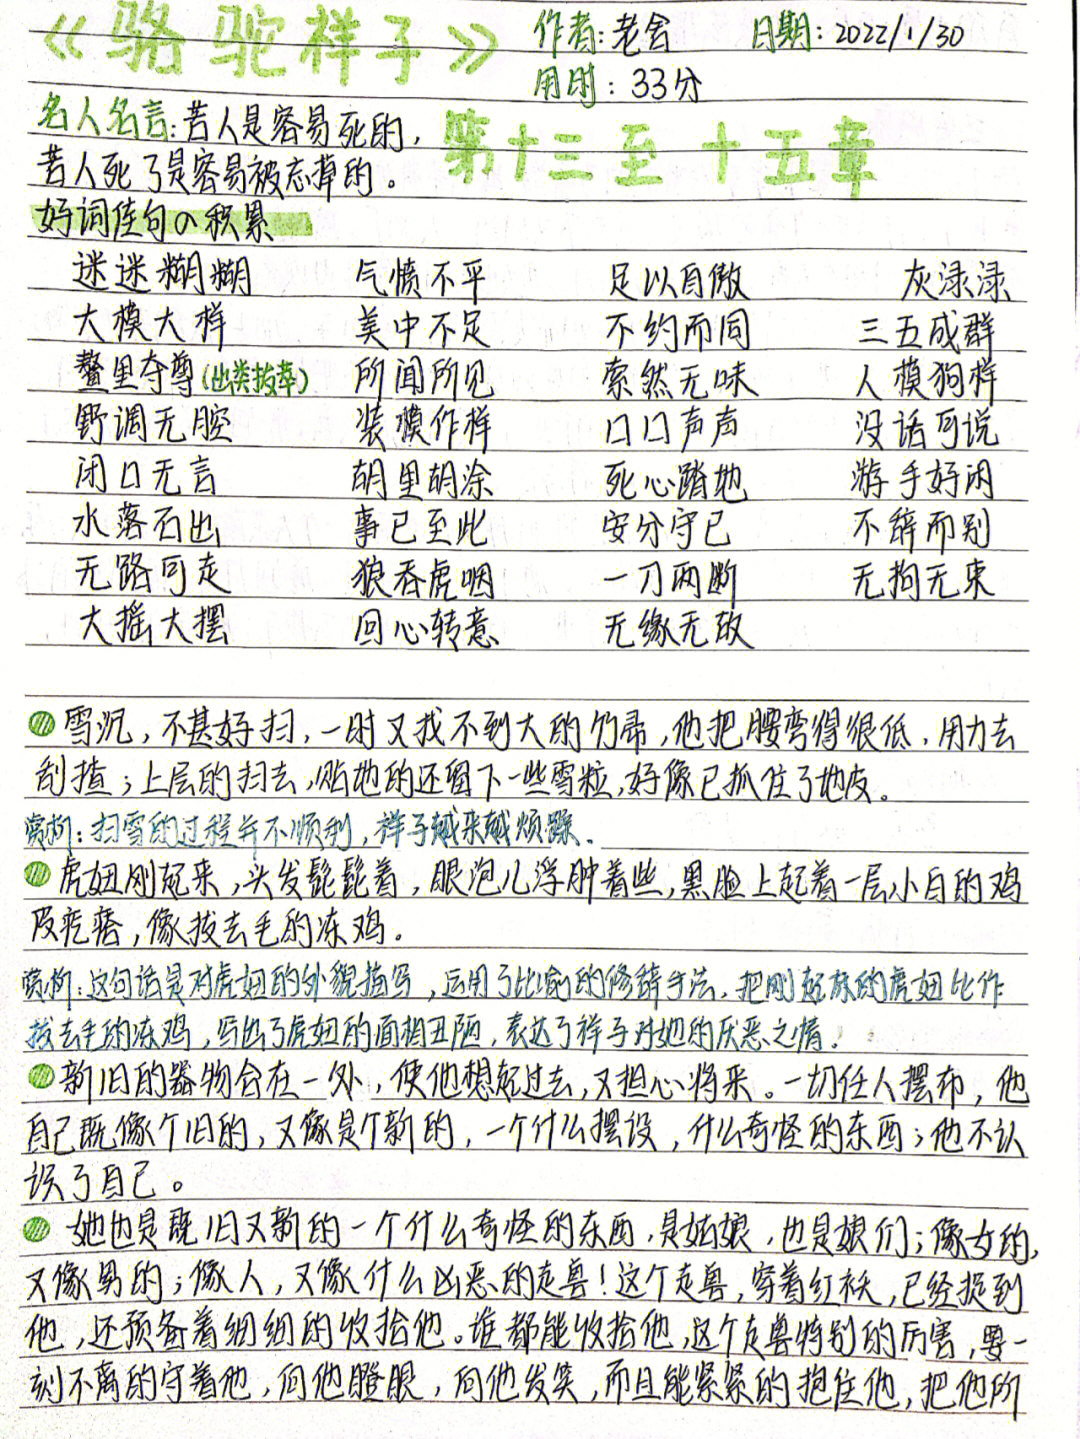 《骆驼祥子》 作者:老舍 日期:2022/1/30
用时:33分
名人名言:苦人是容易死的,
苦人死了是容易被忘掉的。
第十三至十五章
好词佳句の积累
迷迷糊糊 气愤不平 足以自傲 灰渌渌
大模大样 美中不足 不约而同 三五成群
鳌里夺尊(出类拔萃) 所闻所见 索然无味 人模狗样
野调无腔 装模作样 口口声声 没话可说
闭口无言 胡里胡涂 死心踏地 游手好闲
水落石出 事已至此 安分守己 不辞而别
无路可走 狼吞虎咽 一刀两断 无拘无束
大摇大摆 回心转意 无缘无故
雪沉,不甚好扫,一时又找不到大的竹帚,他把腰弯得很低,用力去
刮揸;上层的扫去,贴地的还留下一些雪粒,好像已抓住了地皮。
赏析:扫雪的过程并不顺利,祥子越来越烦躁.
虎妞刚起来,头发髭髭着,眼泡儿浮肿着些,黑脸上起着一层小白的鸡
皮疙瘩,像拔去毛的冻鸡.
赏析:这句话是对虎妞的外貌描写,运用了比喻的修辞手法,把刚起床的虎妞比作
拔去毛的冻鸡,写出了虎妞的面相丑陋,表达了祥子对她的厌恶之情!
新旧的器物合在一处,使他想起过去,又担心将来。一切任人摆布,他
自己既像个旧的,又像是个新的,一个什么摆设,什么奇怪的东西;他不认
识了自己。
她也是既旧又新的一个什么奇怪的东西,是姑娘,也是娘们;像女的,
又像男的;像人,又像什么凶恶的走兽!这个走兽,穿着红袄,已经捉到
他,还预备着细细的收拾他。谁都能收拾他,这个走兽特别的厉害,要一
刻不离的守着他,向他瞪眼,向他发笑,而且能紧紧的抱住他,把他所